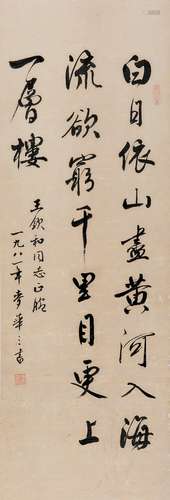 白日依山盡黃河入海
流欲窮千里目更上
一層樓
王欽和同志正腕
一九八一年麥華三書